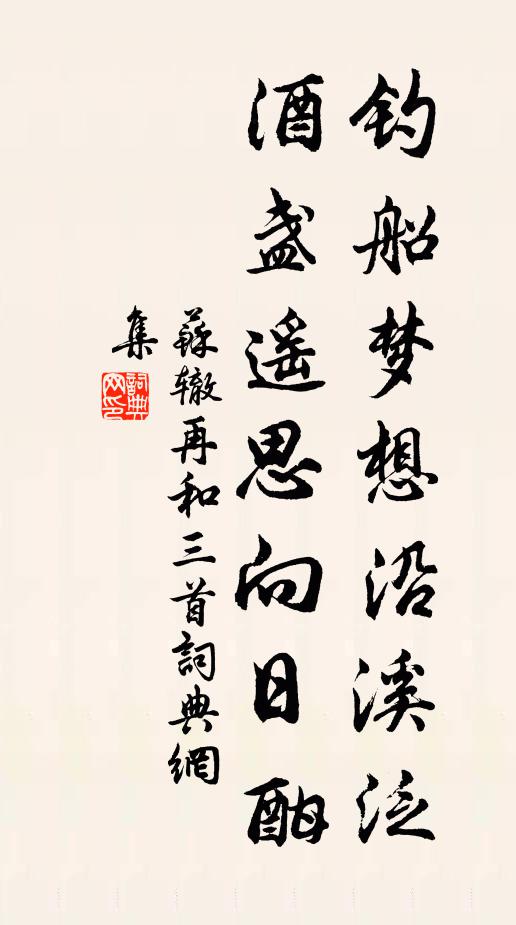 钓船梦想沿溪泛
酒盏遥思向日酣
蘇辙再和三首詞典網
集
詞典
网印